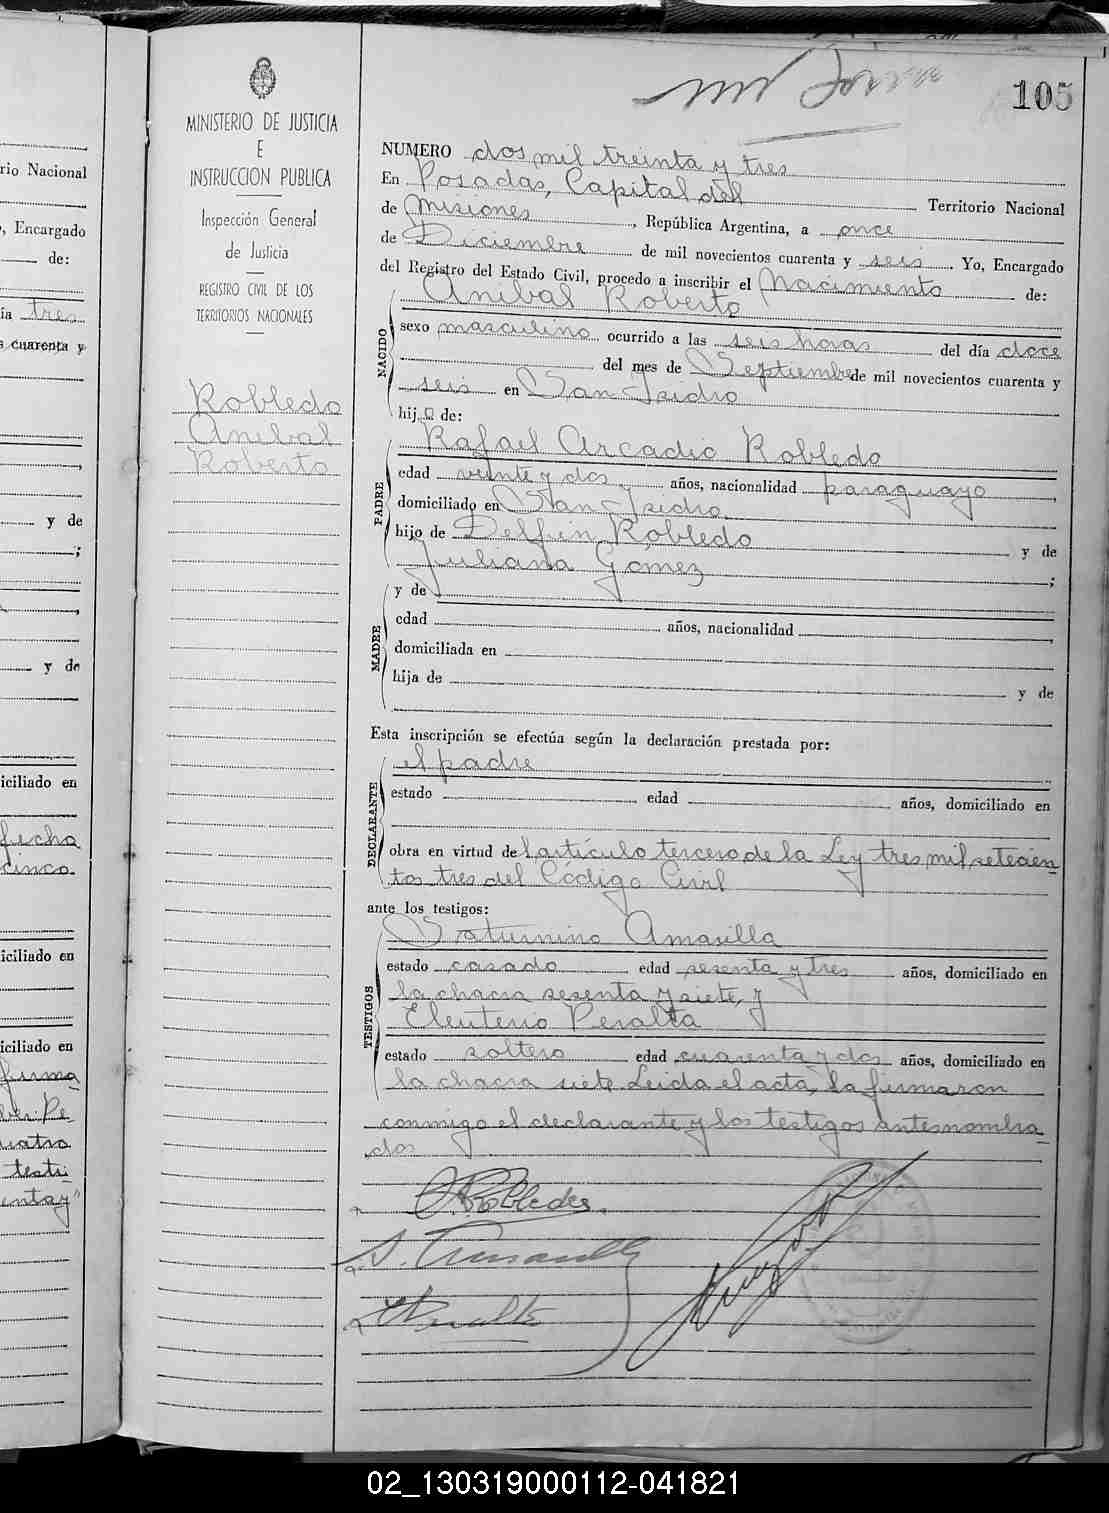 105
MINISTERIO DE JUSTICIA
E
INSTRUCCION PUBLICA
Inspección General
de Justicia
REGISTRO CIVIL DE LOS
TERRITORIOS NACIONALES
Robledo
Anibal
Roberto
NUMERO dos mil treinta y tres
En Posadas, Capital del Territorio Nacional
de Misiones, República Argentina, a once
de Diciembre de mil novecientos cuarenta y seis. Yo, Encargado
del Registro del Estado Civil, procedo a inscribir el Nacimiento de:
NACIDO
Anibal Roberto
sexo masculino ocurrido a las seis horas del día doce
del mes de Septiembre de mil novecientos cuarenta y
seis en San Isidro
hijo de:
PADRE
Rafael Arcadio Robledo
edad veinte y dos años, nacionalidad paraguayo,
domiciliado en San Isidro
hijo de Delfin Robledo y de
Juliana Gómez;
MADRE
y de
edad años, nacionalidad
domiciliada en
hija de y de
Esta inscripción se efectúa según la declaración prestada por:
DECLARANTE
el padre
estado edad años, domiciliado en
obra en virtud del artículo tercero de la Ley tres mil setecien
tos tres del Código Civil
ante los testigos:
TESTIGOS
Saturnino Amarilla
estado casado edad sesenta y tres años, domiciliado en
la chacra sesenta y siete, y
Eleuterio Peralta
estado soltero edad cuarenta y dos años, domiciliado en
la chacra siete Leida el acta, la firmaron
conmigo el declarante y los testigos antesnombra
dos
rio Nacional
, Encargado
de:
ia tres
s cuarenta y
y de
;
y de
iciliado en
fecha
cinco
iciliado en
iciliado en
firma
Pe-
cuatro
testi
entay"
02_130319000112-041821